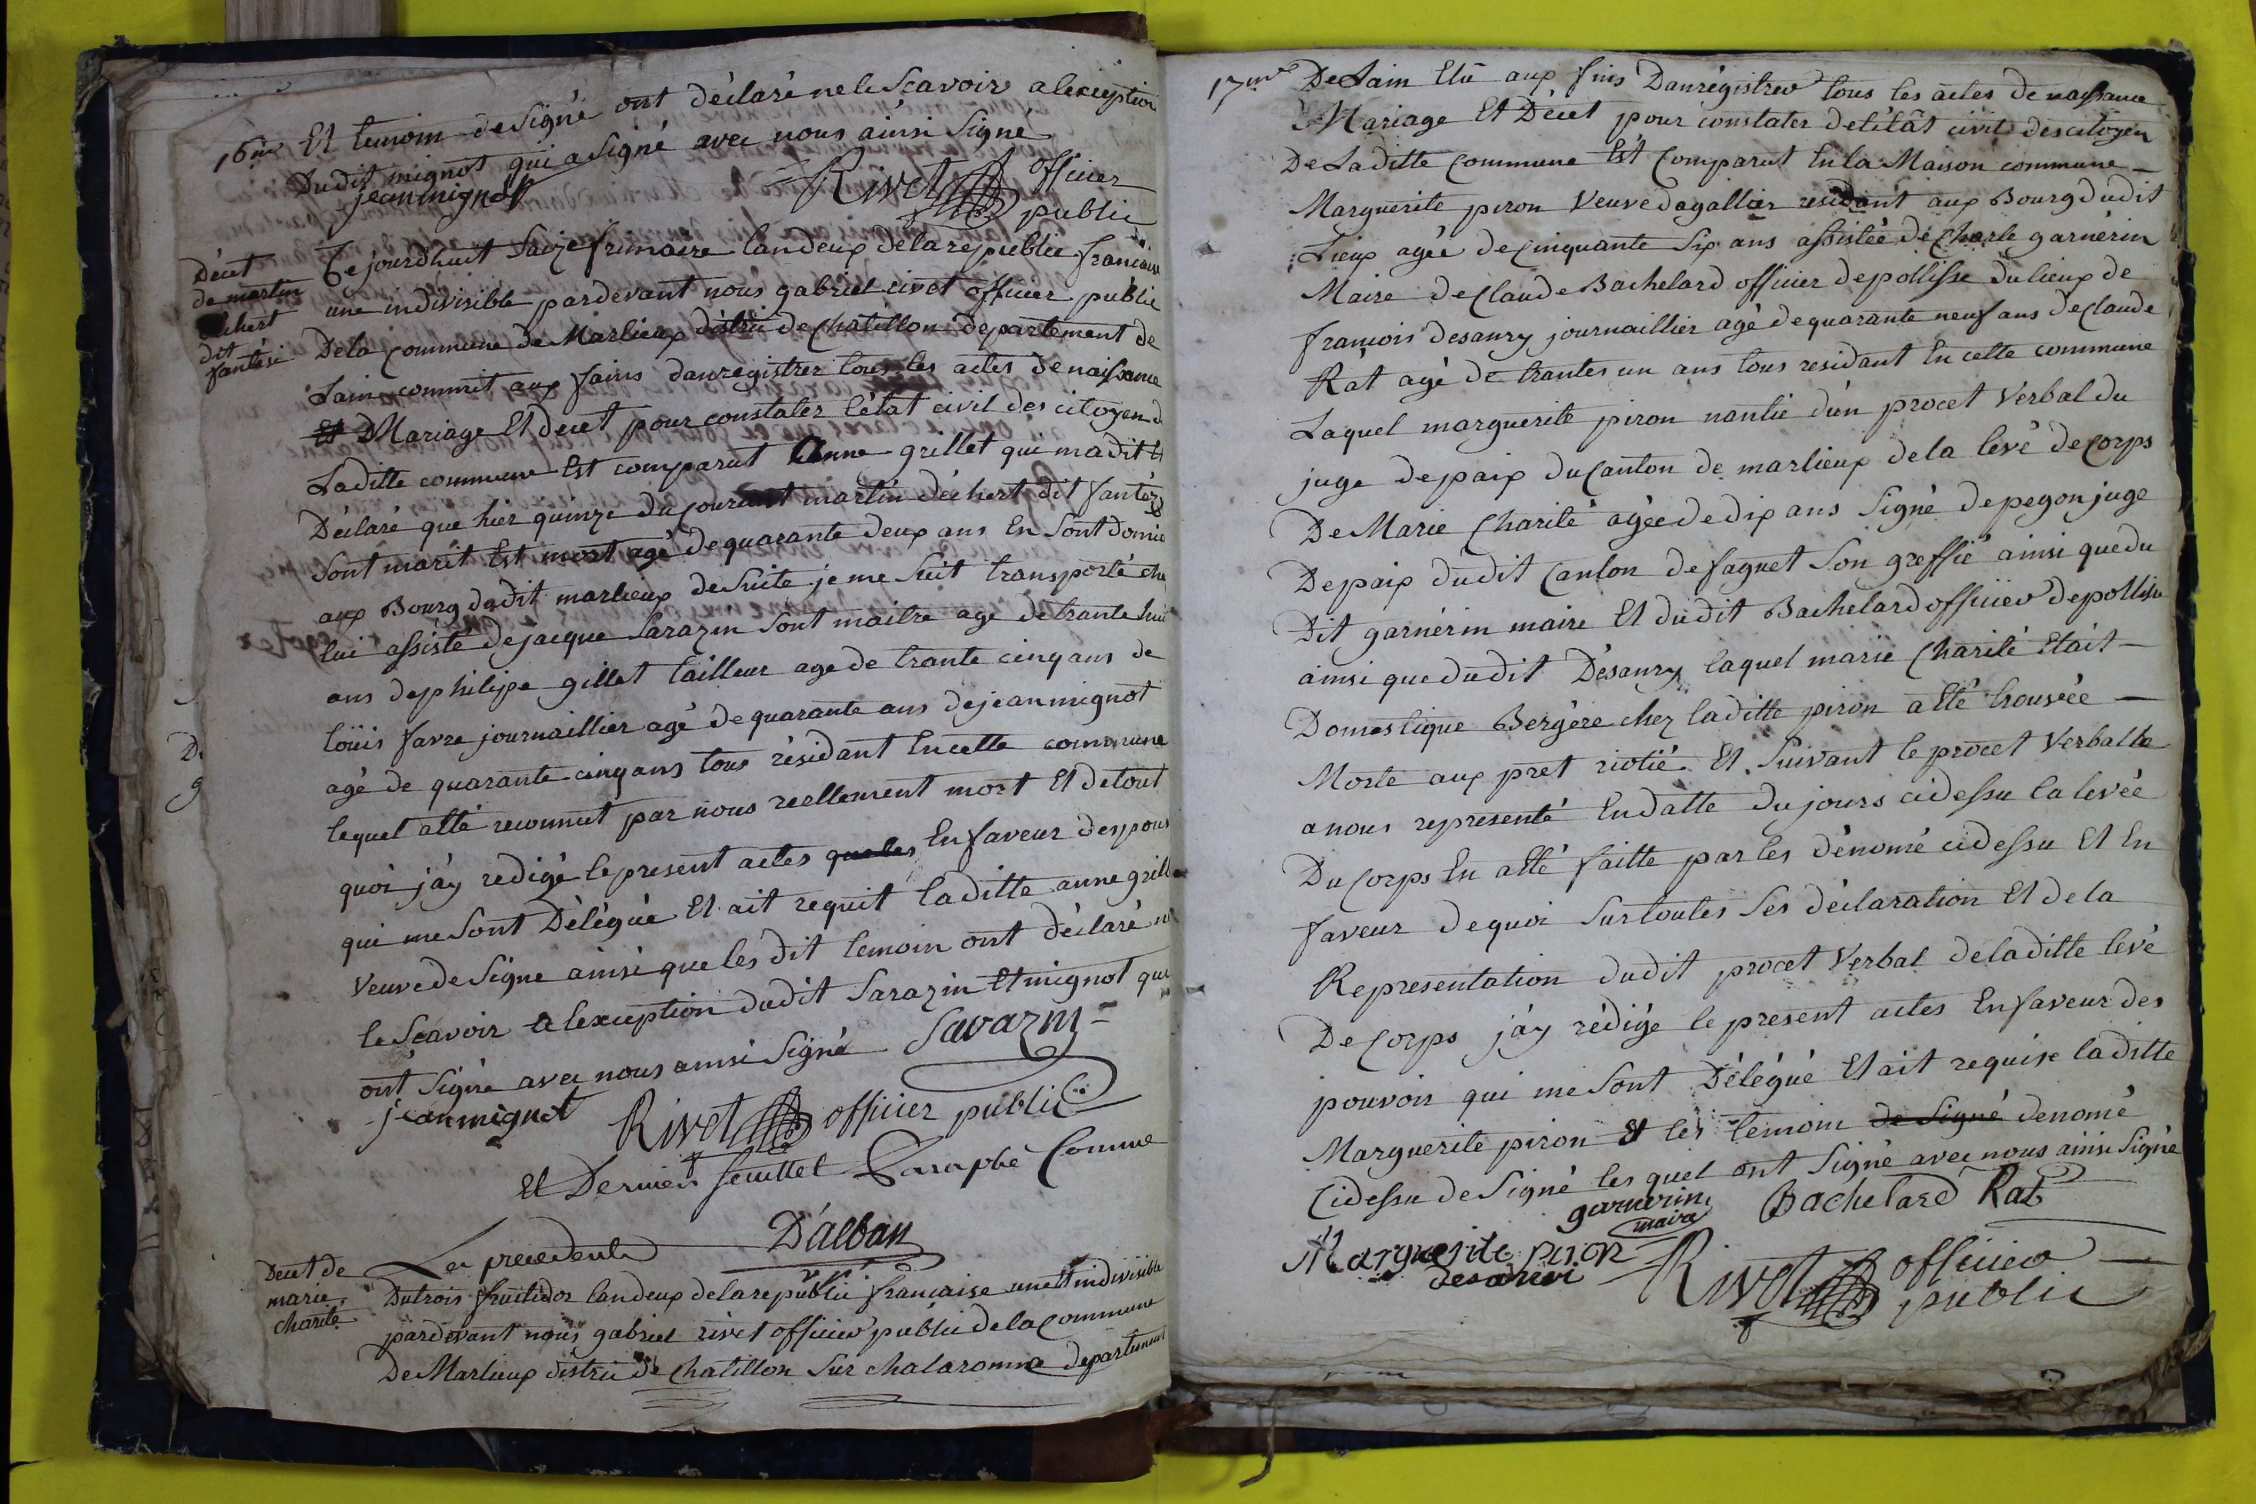 16me Et temoin de Signé ont déclaré ne le Scavoir a lexception
Dudit mignot qui a Signé avec nous ainsi Signé
jean mignot Rivet officier
public
Décet
de martin
dit
fantési
Ce jourdhuit Saize frimaire lan deux de la republic francaise
une indivisible par devant nous gabriel rivet officier public
De la commune de Marlieux distric de Chatillon departement de
Lain commit aux fains danregistrer tous les actes de naissance
Et Mariage Et decet pour constater létat civil des citoyen d
Laditte commune Est comparut Anne grillet qui ma dit Et
Déclaré que hier quinze du courant martin déchert dit fantéz
Sont marit Est mort agé de quarante deux ans En Sont domic
aux Bourg dudit marlieux de Suite je me Suit transporté che
lui assisté de jacque Sarazin Sont maitre age de trante hui
ans de philipe gillet tailleur age de trante cinq ans de
loüis favre journaillier agé de quarante ans de jean mignot
agé de quarante cinq ans tous résidant En cette commune
lequel atté reconnut par nous reellement mort Et de tout
quoi jáy redigé le present actes queles En faveur des pouv
qui me Sont Délégué Et ait requit laditte anne grill
veuve de Signe ainsi que les dit temoin ont déclaré n
le Scavoir a lexception dudit Sarazin Et mignot qui
ont Signé avec nous ainsi Signé Savazin
jean mignot Rivet officier public
Et Dernier feuillet Paraphé Comme
Les precedents D'alban
Decet de
marie
charité
Du trois fruitidor lan deux de la republic francaise une Et indivisible
par devant nous gabriel rivet officier public de la Commune
De Marlieux distric de Chatillon Sur chalaronne departement
17me De Lain Elu aux fins Danrégistrer tous les actes de naissance
Mariage Et Décet pour constater de létàt civil des citoyen
De Laditte Commune Est Comparut En la Maison commune
Marguerite piron Veuve dagallier residant aux Bourg dudit
Lieux agée de Cinquante Six ans assistée de Charle garnérin
Maire de Claude Bachelard officier de pollisse du lieux de
francois desaury journaillier agé de quarante neuf ans de Claude
Rat agé de trantes un ans tous residant En cette commune
Laquel marguerite piron nantie dún procet Verbal du
juge de paix du Canton de marlieux de la levé de Corps
De Marie Charité agée de dix ans Signé depegon juge
De paix dudit Canton de faguet Son greffié ainsi que du
Dit garnérin maire Et dudit Bachelard officier de pollise
ainsi que dudit Désaury laquel marie Charité Etait
Domestique Bergère chez laditte piron atté trouvée
Morte aux pret riotié Et Suivant le procet Verballe
a nous representé En datte du jours cidessu la levée
Du Corps En atté faitte par les dénomé cidessu Et En
faveur de quoi Sur toutes Ses déclaration Et de la
Representation dudit procet Verbal de laditte levé
De Corps jáy rédigé le present actes En faveur des
pouvoir qui me Sont Délégué Et ait requise laditte
Marguerite piron Et les temoin de Signé denomé
Cidessu de Signé les quel ont Signé avec nous ainsi Signé
garnerin Bachelard Rat
maire
Marguerite piron
Rivet officier
public